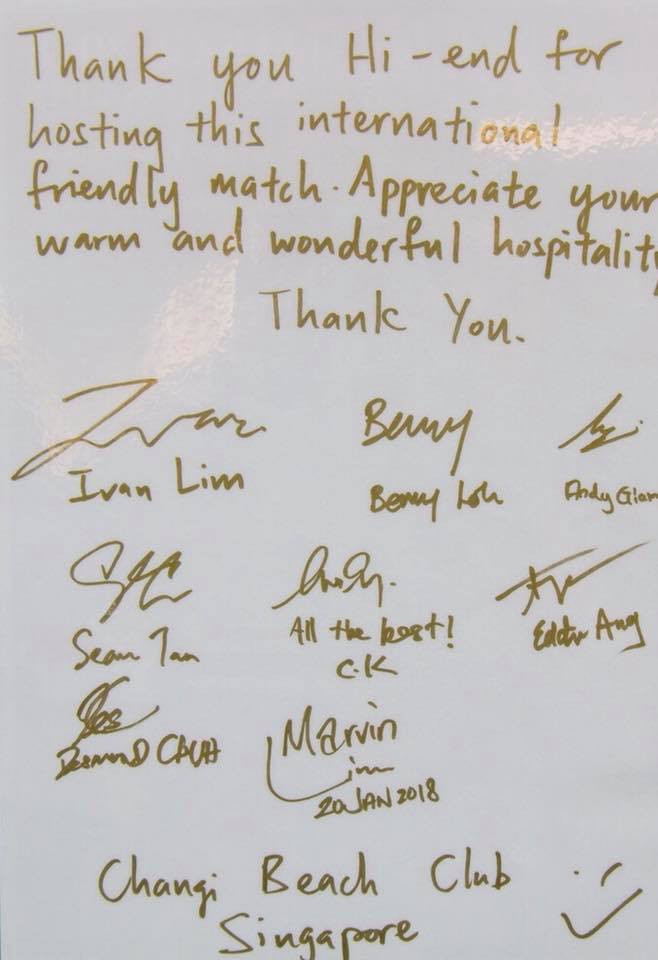 Thank you Hi-end for
hosting this international
friendly match. Appreciate your
warm and wonderful hospitality
Thank You.
Ivan Benny
Ivan Lim Benny Loh Andy Gian
Sean Tan All the best! Eddie Ang
C.K
Desmond CHUA Marvin
Lim
20 JAN 2018
Changi Beach Club
Singapore